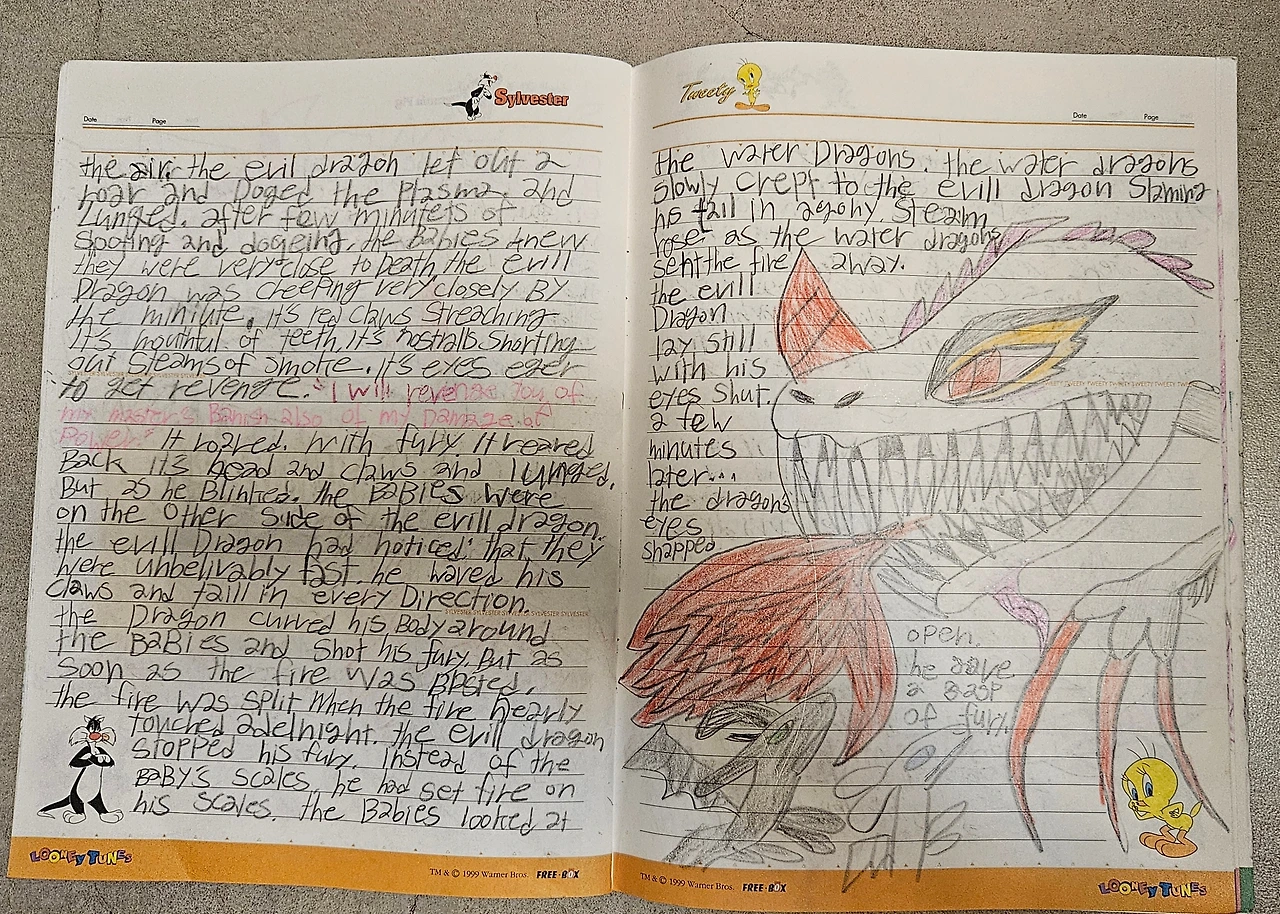 Sylvester
Date Page
the air. the evil dragon let out a
roar and Doged the Plasma. and
Lunged. after few minutets of
Spoting and dogeing. the Babies knew
they were very close to Death, the evill
Dragon was creeping very closely By
the miniute. it's red claws Streaching
it's mouthful of teeth, it's nostralls Shorting
out Steams of Smoke. it's eyes eger
to get revenge. "I will revenge You of
my master's Banish also of my Damage at
Power!" it roared. With fury. it reared
Back it's head and claws and lunged.
But as he Blinked. the BaBies were
on the Other Side of the evill dragon.
the evill Dragon had noticed that they
were unbelivably fast. he waved his
claws and taill in every Direction.
SYLVESTER SYLVESTER SYLVESTER SYLVESTER
the Dragon curved his Body around
the BaBies and shot his fury. But as
soon as the fire was
the fire was split When the fire nearly
touched adelnight. the evill dragon
stopped his fury. instead of the
BaBy's scales, he had set fire on
his scales. the Babies looked at
LOONEY TUNES
TM & © 1999 Warner Bros. FREE·BOX
Tweety
Date Page
the water Dragons. the water dragons
slowly crept to the evill dragon Slaming
his tail in agony. Steam
rose as the water dragons
sent the fire away.
the evill
Dragon
lay still
with his
eyes shut.
a few
minutes
later...
the dragons
eyes
snapped
TWEETY TWEETY TWEETY TWEETY TWEETY
open.
he gave
a gasp
of fury.
TM & © 1999 Warner Bros. FREE·BOX
LOONEY TUNES